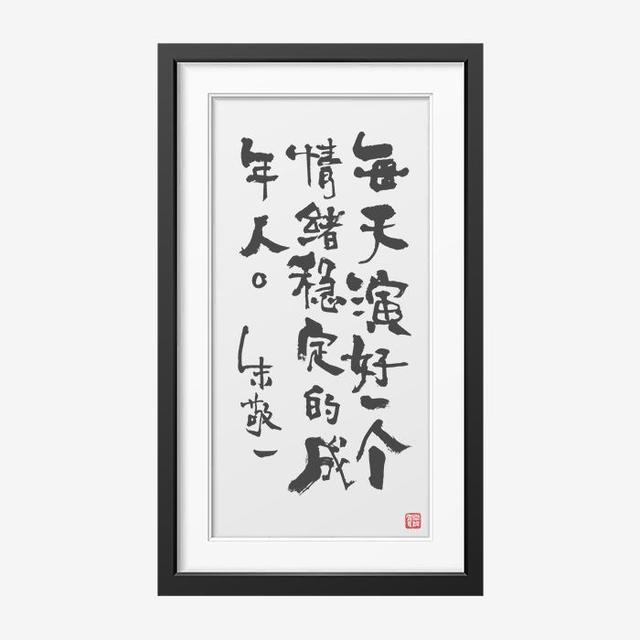 每天演好一个
情绪稳定的成
年人。
朱敬一